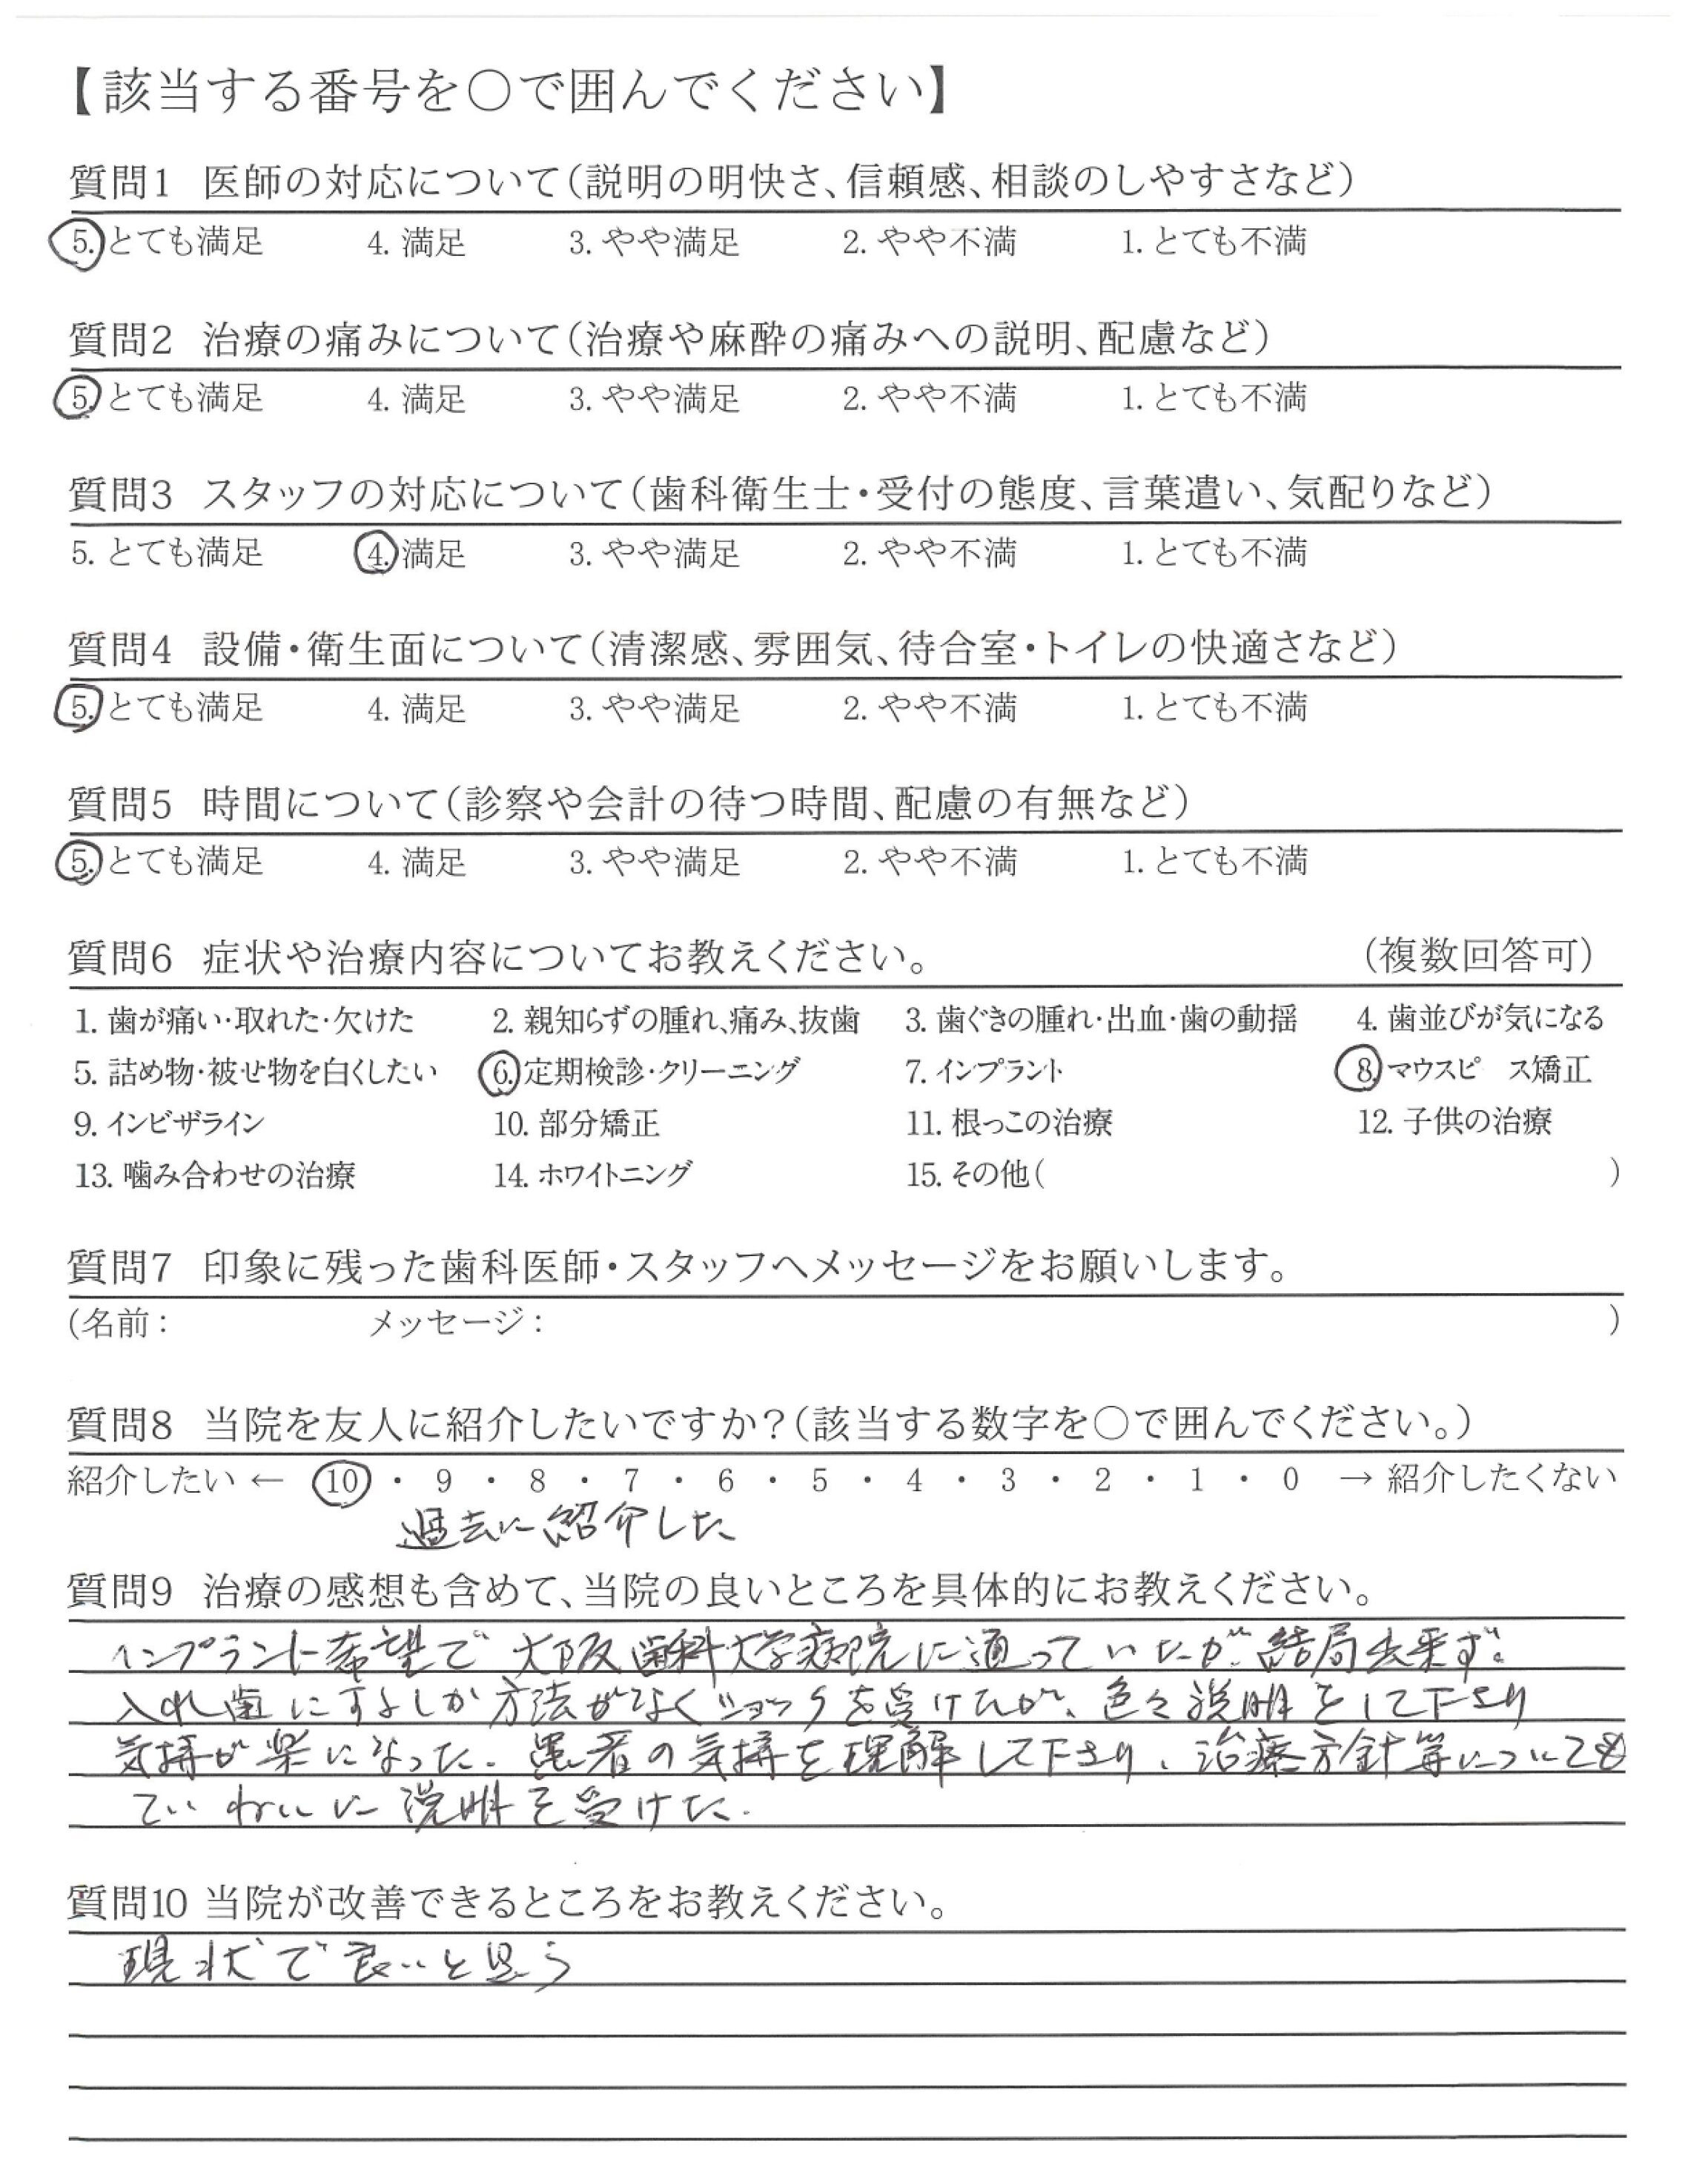 【該当する番号を〇で囲んでください】
質問1 医師の対応について(説明の明快さ、信頼感、相談のしやすさなど)
5. とても満足 4. 満足 3. やや満足 2. やや不満 1. とても不満
質問2 治療の痛みについて(治療や麻酔の痛みへの説明、配慮など)
5. とても満足 4. 満足 3. やや満足 2. やや不満 1. とても不満
質問3 スタッフの対応について(歯科衛生士・受付の態度、言葉遣い、気配りなど)
5. とても満足 4. 満足 3. やや満足 2. やや不満 1. とても不満
質問4 設備・衛生面について(清潔感、雰囲気、待合室・トイレの快適さなど)
5. とても満足 4. 満足 3. やや満足 2. やや不満 1. とても不満
質問5 時間について(診察や会計の待つ時間、配慮の有無など)
5. とても満足 4. 満足 3. やや満足 2. やや不満 1. とても不満
質問6 症状や治療内容についてお教えください。 (複数回答可)
1. 歯が痛い・取れた・欠けた 2. 親知らずの腫れ、痛み、抜歯 3. 歯ぐきの腫れ・出血・歯の動揺 4. 歯並びが気になる
5. 詰め物・被せ物を白くしたい 6. 定期検診・クリーニング 7. インプラント 8. マウスピ ス矯正
9. インビザライン 10. 部分矯正 11. 根っこの治療 12. 子供の治療
13. 噛み合わせの治療 14. ホワイトニング 15. その他( )
質問7 印象に残った歯科医師・スタッフへメッセージをお願いします。
(名前: メッセージ: )
質問8 当院を友人に紹介したいですか?(該当する数字を〇で囲んでください。)
紹介したい ← 10 ・ 9 ・ 8 ・ 7 ・ 6 ・ 5 ・ 4 ・ 3 ・ 2 ・ 1 ・ 0 → 紹介したくない
過去に紹介した
質問9 治療の感想も含めて、当院の良いところを具体的にお教えください。
インプラント希望で大阪歯科大学病院に通っていたが、結局出来ず。
入れ歯にするしか方法がなくショックを受けたが、色々説明をして下さり
気持が楽になった。患者の気持を理解して下さり、治療方針等についても
ていねいに説明を受けた。
質問10 当院が改善できるところをお教えください。
現状で良いと思う